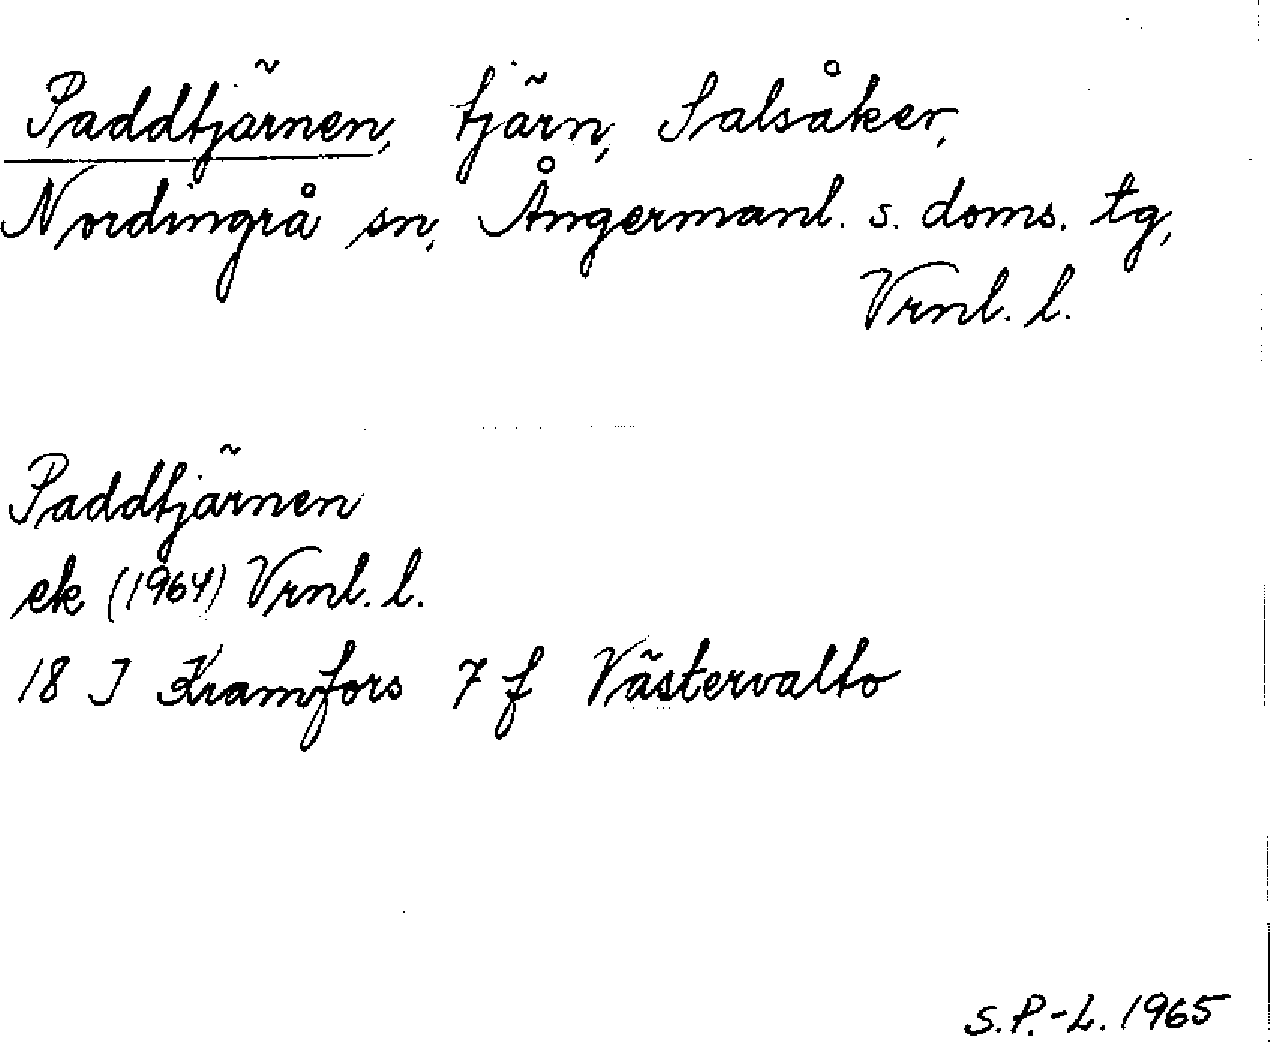 Paddtjärnen, tjärn, Salsåker,
Nordingrå sn, Ångermanl. s. doms. tg,
Vrnl. l.
Paddtjärnen
ek (1964) Vrnl. l.
18 J Kramfors 7 f Västervalto
S. P.-L. 1965